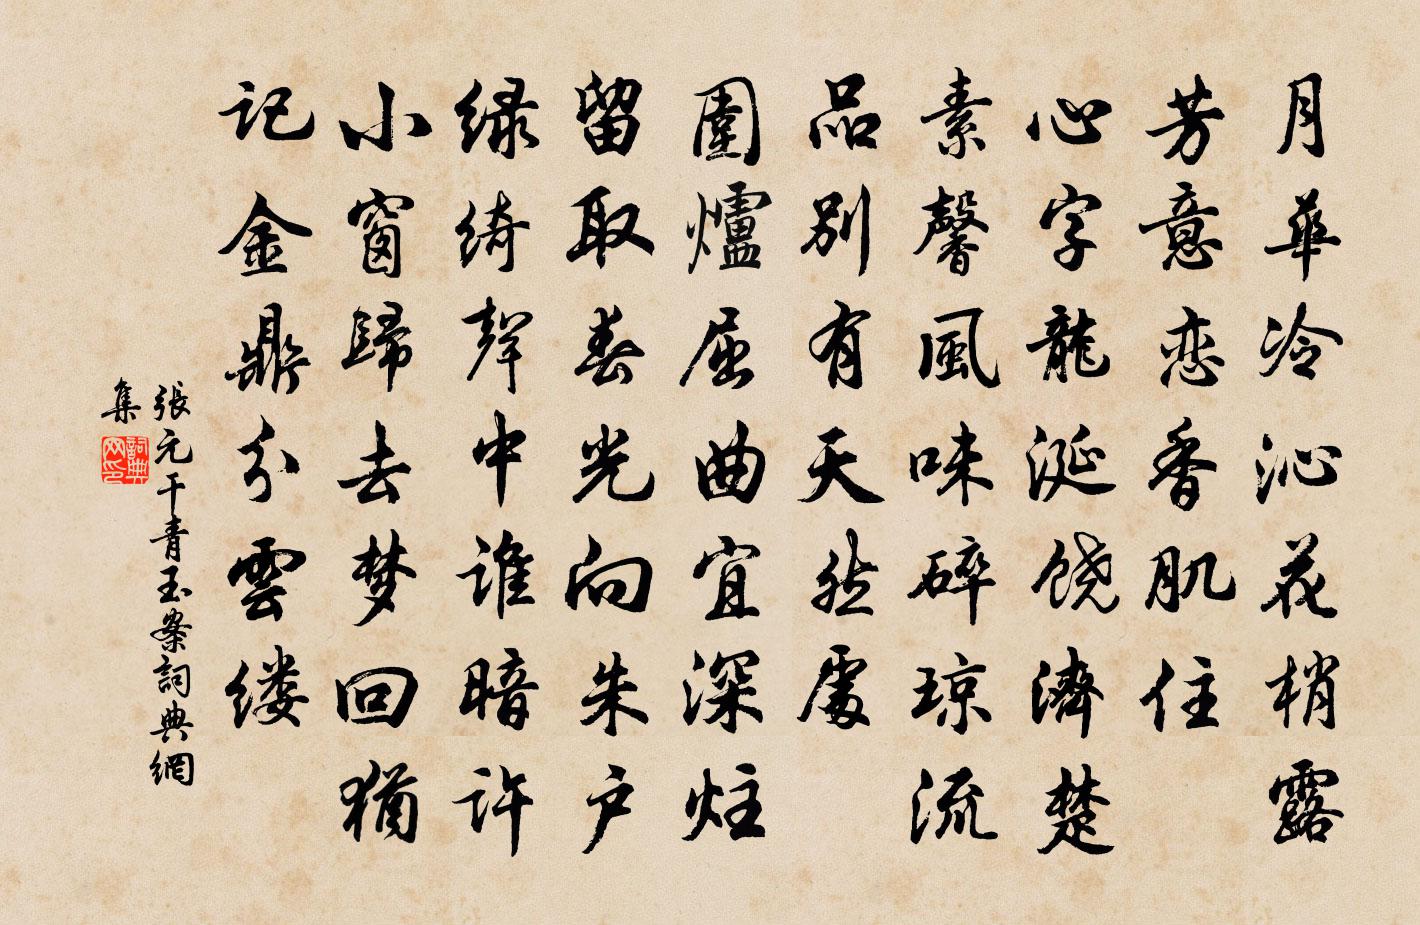 月華冷沁花梢露
芳意恋香肌住
心字龍涎饶濟楚
素馨風味碎琼流
品別有天然處
圍爐屈曲宜深炷
留取春光向朱户
绿绮聲中誰暗许
小窗歸去梦回猶
记金鼎分雲缕
張元干青玉案詞典網
集
詞典网印